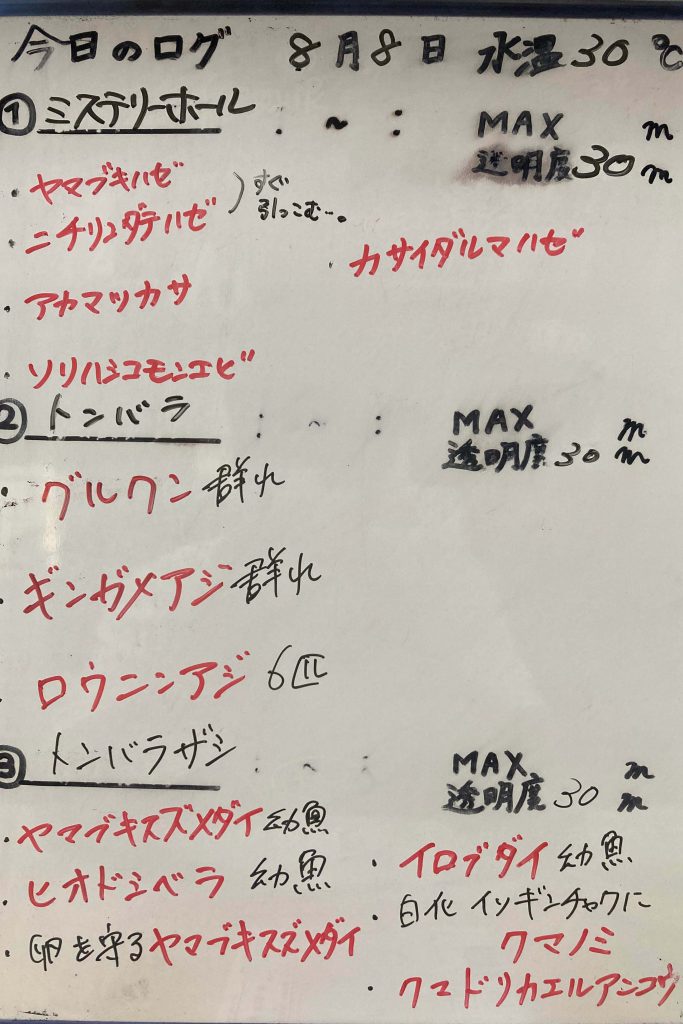 今日のログ 8月8日 水温30℃
① ミステリーホール : ~ : MAX m
透明度30m
・ヤマブキハゼ
・ニチリンダテハゼ )すぐ引っこむ…。
・カサイダルマハゼ
・アカマツカサ
・ソリハシコモンエビ
② トンバラ : ~ : MAX m
透明度30m
・グルクン群れ
・ギンガメアジ群れ
・ロウニンアジ 6匹
③ トンバラザシ : ~ : MAX m
透明度30m
・ヤマブキスズメダイ幼魚
・ヒオドシベラ 幼魚
・卵を守るヤマブキスズメダイ
・イロブダイ 幼魚
・白化 イソギンチャクに
クマノミ
・クマドリカエルアンコウ